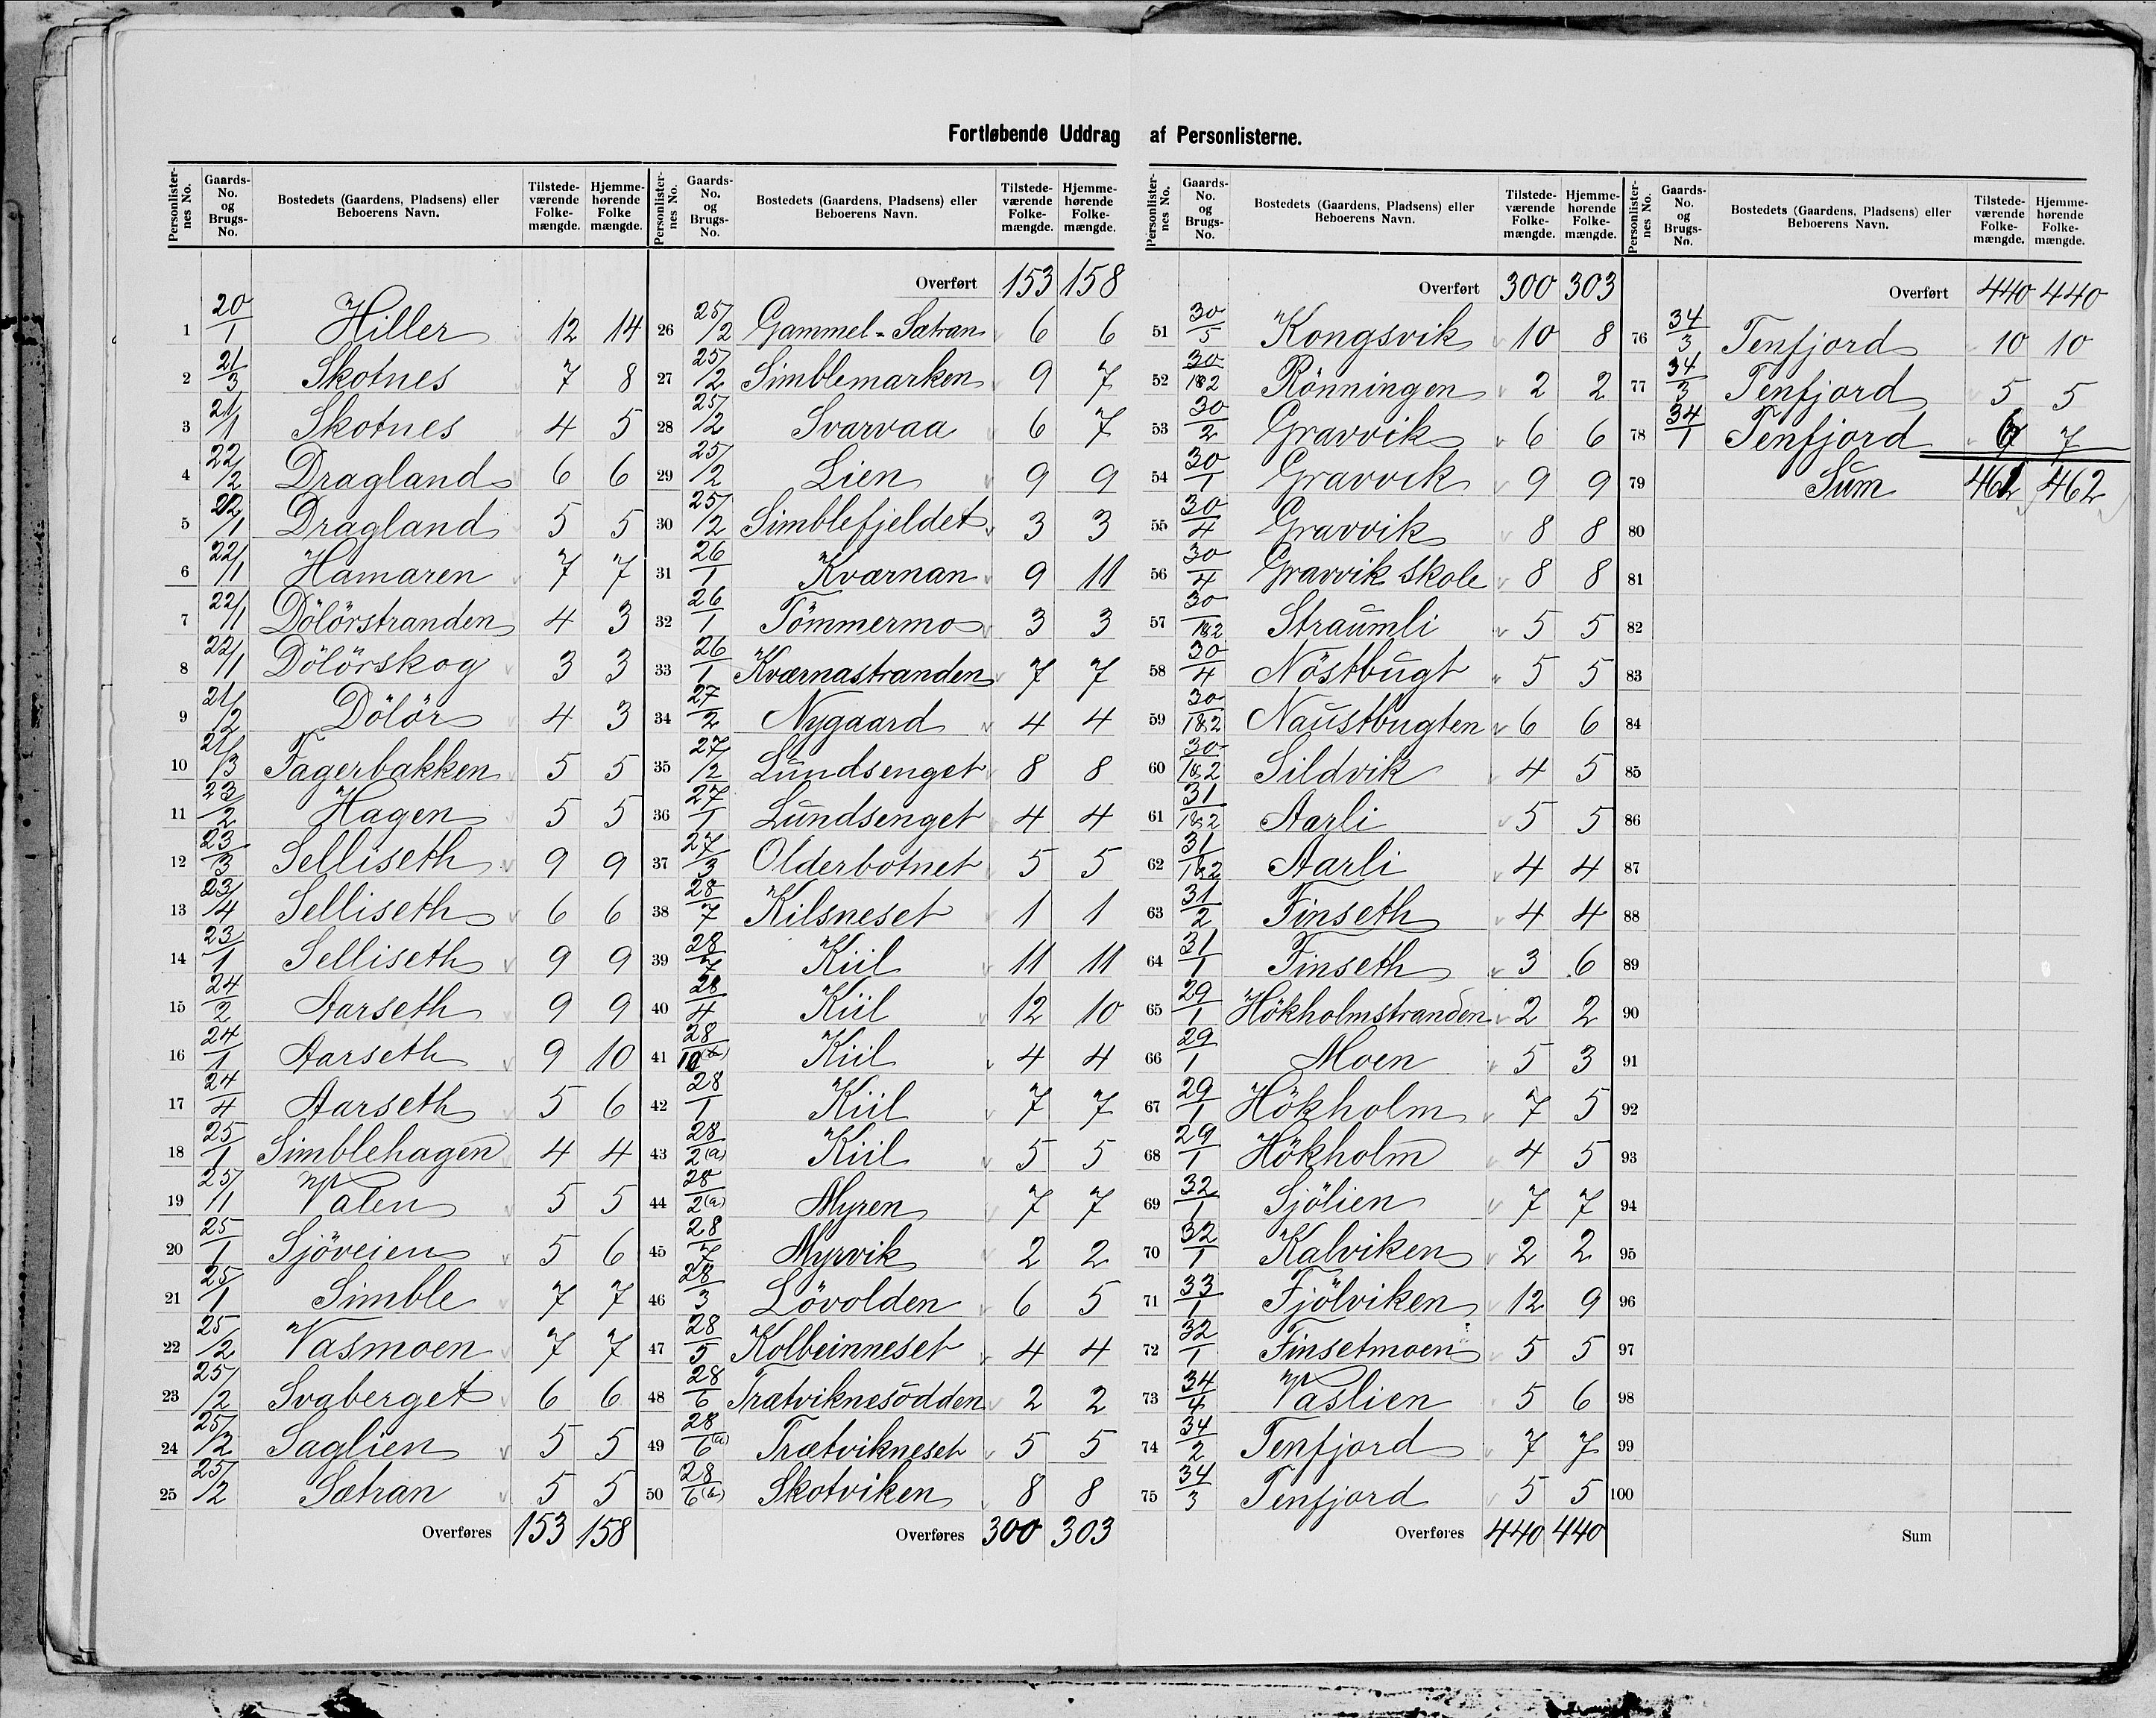 Fortløbende Uddrag af Personlisterne.
Personlisternes No. Gaards-No. og Brugs-No. Bostedets (Gaardens, Pladsens) eller Beboerens Navn. Tilstedeværende Folkemængde. Hjemmehørende Folkemængde.
1 20/1 Hiller 12 14
2 21/3 Skotnes 7 8
3 21/1 Skotnes 4 5
4 22/2 Dragland 6 6
5 22/1 Dragland 5 5
6 22/1 Hamaren 7 7
7 22/1 Dölörstranden 4 3
8 22/1 Dölörskog 3 3
9 21/2 Dölör 4 3
10 21/3 Fagerbakken 5 5
11 23/2 Hagen 5 5
12 23/3 Selliseth 9 9
13 23/4 Selliseth 6 6
14 23/1 Selliseth 9 9
15 24/2 Aarseth 9 9
16 24/1 Aarseth 9 10
17 24/4 Aarseth 5 6
18 25/1 Simblehagen 4 4
19 25/1 Valen 5 5
20 25/1 Sjöveien 5 6
21 25/1 Simble 7 7
22 25/2 Vasmoen 7 7
23 25/2 Svaberget 6 6
24 25/2 Saglien 5 5
25 25/2 Sætran 5 5
Overføres 153 158
Personlisternes No. Gaards-No. og Brugs-No. Bostedets (Gaardens, Pladsens) eller Beboerens Navn. Tilstedeværende Folkemængde. Hjemmehørende Folkemængde.
Overført 153 158
26 25/2 Gammel-Sætran 6 6
27 25/2 Simblemarken 9 7
28 25/2 Svarvaa 6 7
29 25/2 Lien 9 9
30 25/2 Simblefjeldet 3 3
31 26/1 Kværnan 9 11
32 26/1 Tömmermo 3 3
33 26/1 Kværnastranden 7 7
34 27/2 Nygaard 4 4
35 27/2 Lundsenget 8 8
36 27/1 Lundsenget 4 4
37 27/3 Olderbotnet 5 5
38 28/7 Kilsneset 1 1
39 28/7 Kiil 11 11
40 28/4 Kiil 12 10
41 28/10 Kiil 4 4
42 28/1 Kiil 7 7
43 28/2(a) Kiil 5 5
44 28/2(a) Myren 7 7
45 28/7 Myrvik 2 2
46 28/3 Lövolden 6 5
47 28/5 Kolbeinneset 4 4
48 28/6 Trætviknesodden 2 2
49 28/6(a) Trætvikneset 5 5
50 28/6(a) Skotviken 8 8
Overføres 300 303
Personlisternes No. Gaards-No. og Brugs-No. Bostedets (Gaardens, Pladsens) eller Beboerens Navn. Tilstedeværende Folkemængde. Hjemmehørende Folkemængde.
Overført 300 303
51 30/5 Kongsvik 10 8
52 30/1&2 Rönningen 2 2
53 30/2 Gravvik 6 6
54 30/1 Gravvik 9 9
55 30/4 Gravvik 8 8
56 30/4 Gravvik skole 8 8
57 30/1&2 Straumli 5 5
58 30/4 Nöstbugt 5 5
59 30/1&2 Naustbugten 6 6
60 30/1&2 Sildvik 4 5
61 31/1&2 Aarli 5 5
62 31/1&2 Aarli 4 4
63 31/2 Finseth 4 4
64 31/1 Finseth 3 6
65 29/1 Hökholmstranden 2 2
66 29/1 Moen 5 3
67 29/1 Hökholm 7 5
68 29/1 Hökholm 4 5
69 32/1 Sjölien 7 7
70 32/1 Kalviken 2 2
71 33/1 Fjölviken 12 9
72 32/1 Finsetmoen 5 5
73 34/4 Vaslien 5 6
74 34/2 Tenfjord 7 7
75 34/3 Tenfjord 5 5
Overføres 440 440
Personlisternes No. Gaards-No. og Brugs-No. Bostedets (Gaardens, Pladsens) eller Beboerens Navn. Tilstedeværende Folkemængde. Hjemmehørende Folkemængde.
Overført 440 440
76 34/3 Tenfjord 10 10
77 34/3 Tenfjord 5 5
78 34/1 Tenfjord 7
79 Sum 462 462
80
81
82
83
84
85
86
87
88
89
90
91
92
93
94
95
96
97
98
99
100
Sum